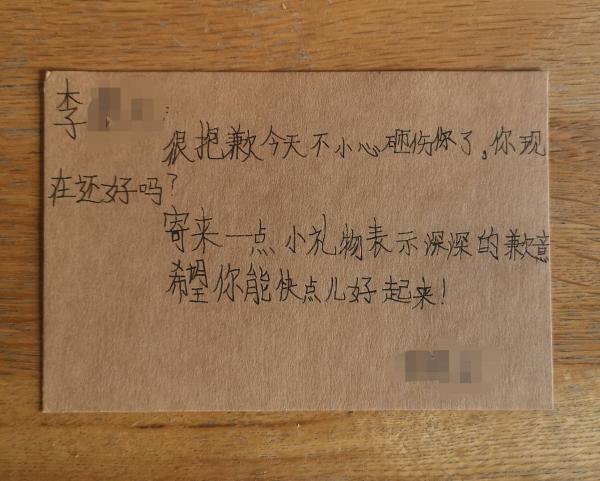 李 :
很抱歉今天不小心砸伤你了,你现
在还好吗?
寄来一点小礼物表示深深的歉意
希望你能快点儿好起来!